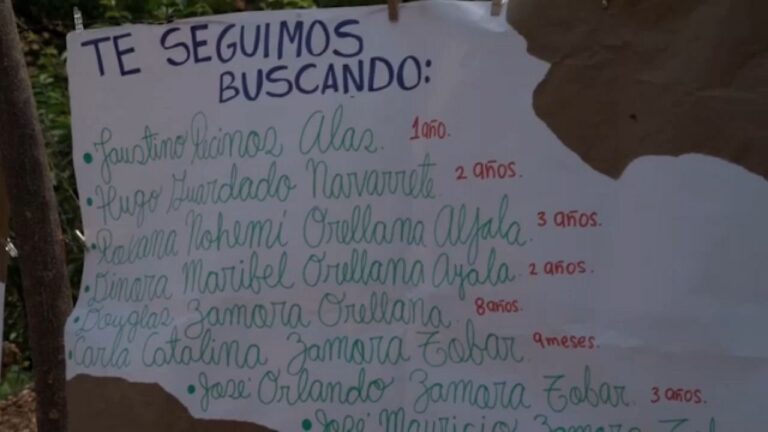 TE SEGUIMOS
BUSCANDO:
• Faustino Recinos Alas. 1 año.
• Hugo Guardado Navarrete. 2 años.
• Roxana Nohemí Orellana Alfala. 3 años.
• Dinora Maribel Orellana Ayala. 2 años.
• Douglas Zamora Orellana. 8 años.
• Carla Catalina Zamora Tobar. 9 meses.
• José Orlando Zamora Tobar. 3 años.
• José Mauricio Zamora Tobar